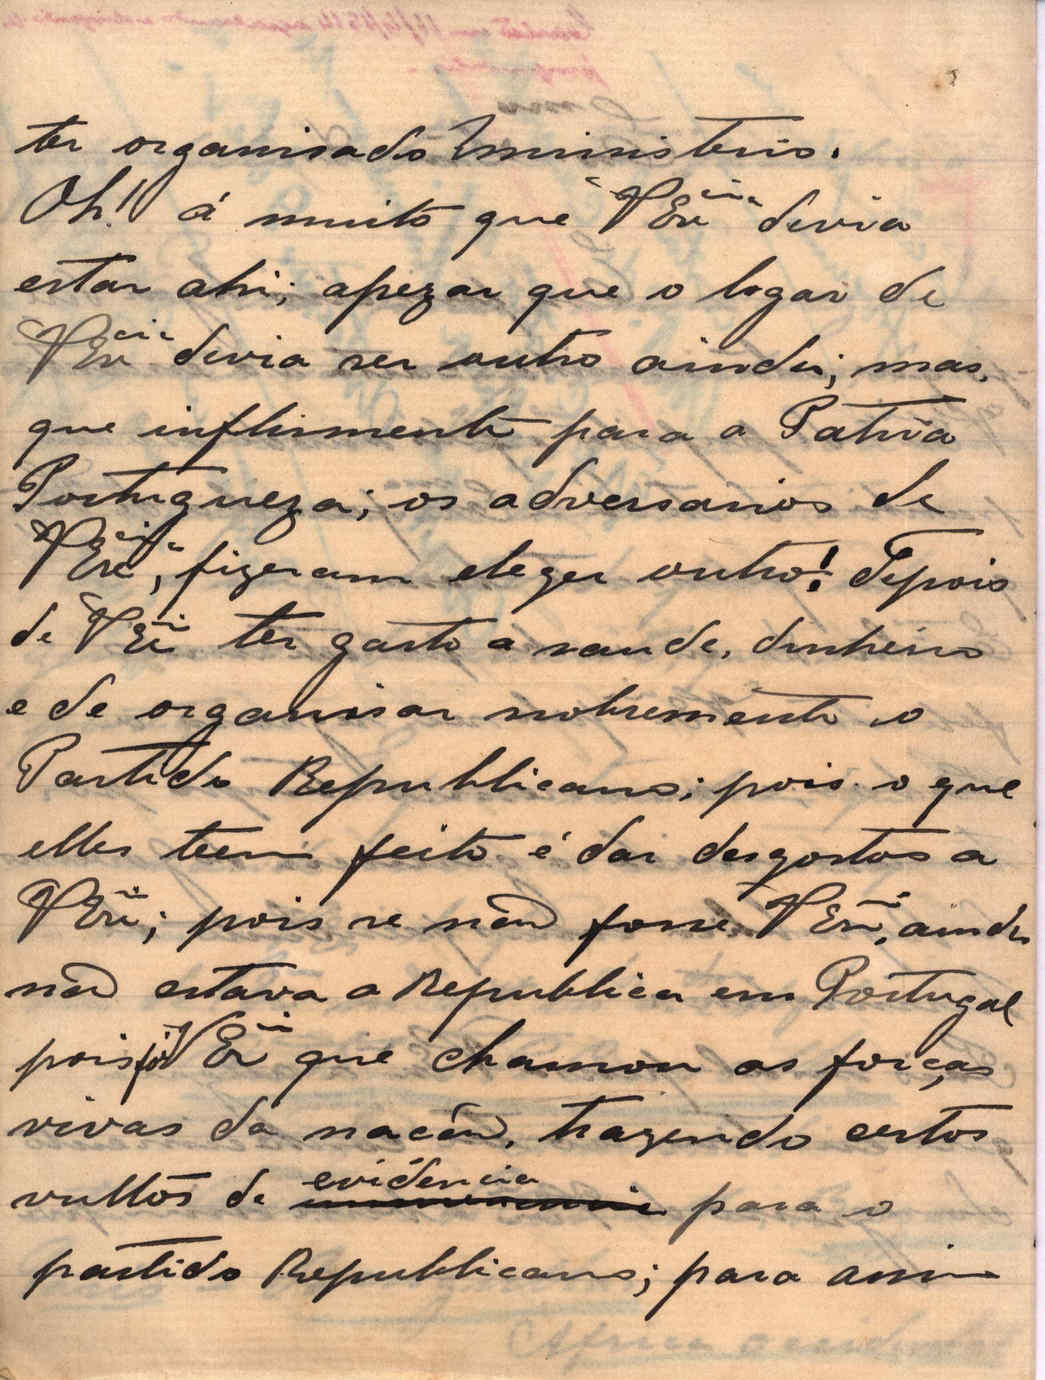 ter organisado Ministerio.
Oh! á muito que VExcia devia
estar ahi; apezar que o logar de
VExcia devia ser outro ainda; mas,
que inflismente para a Patria
Portugueza; os adversarios de
VExcia, fizeram eleger outro! Depois
de VExcia ter gasto a saude, dinheiro
e de organisar nobremente o
Partido Republicano; pois o que
elles teem feito é dar desgostos a
VExcia; pois se não fosse VExcia, ainda
não estava a Republica em Portugal
pois foi VExcia que chamou as forças
vivas da nação, trazendo certos
vultos de evidencia para o
partido Republicano; para assim